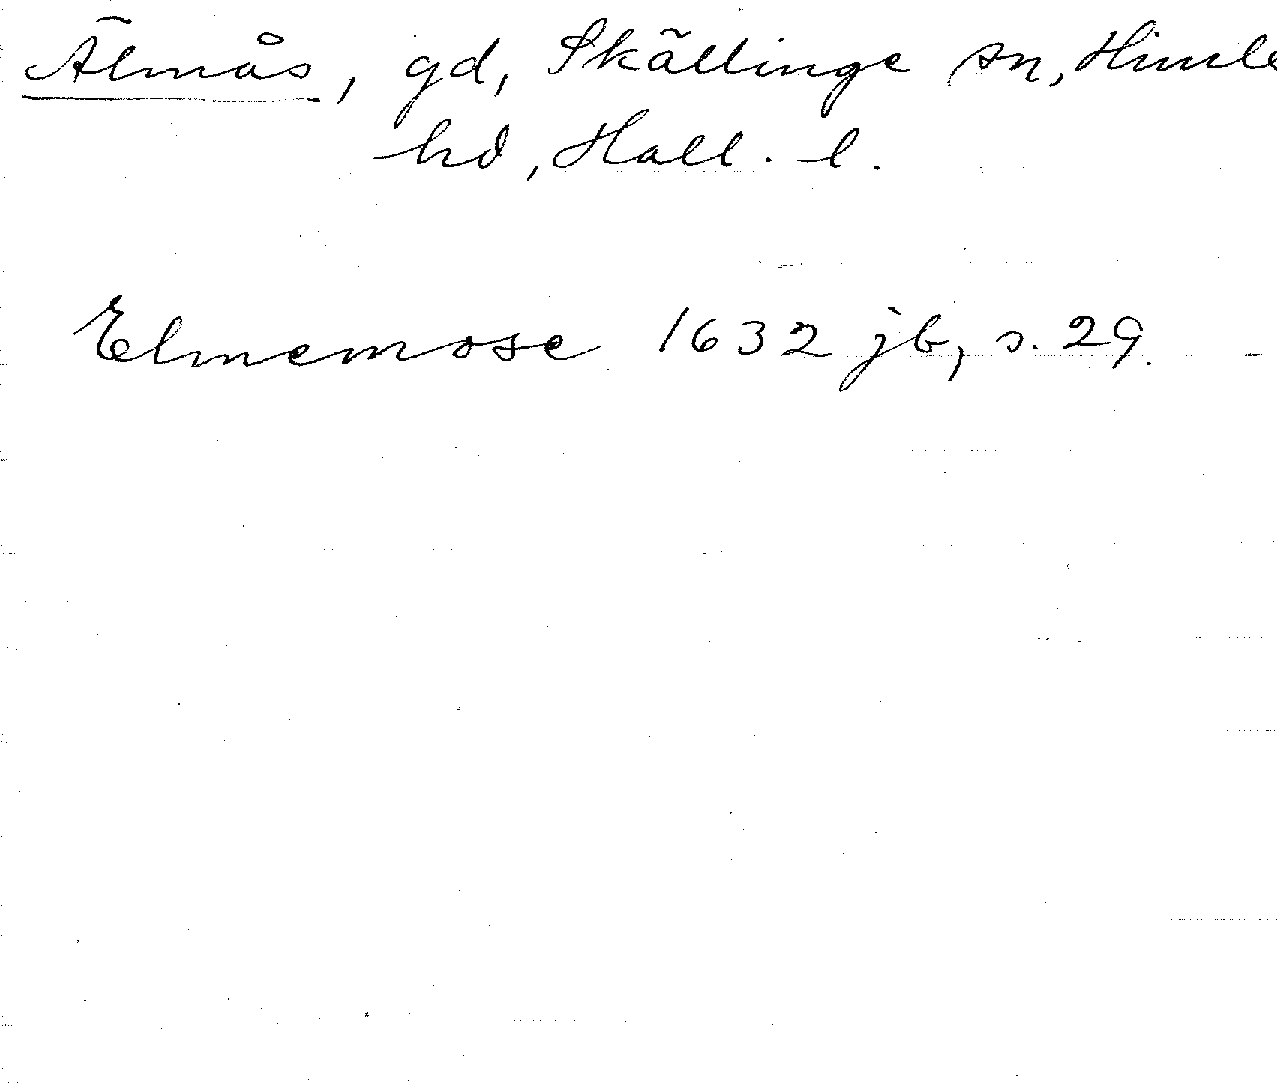 Älmås, gd, Skällinge sn, Himle
hd, Hall. l.
Elmemose 1632 jb, s. 29.